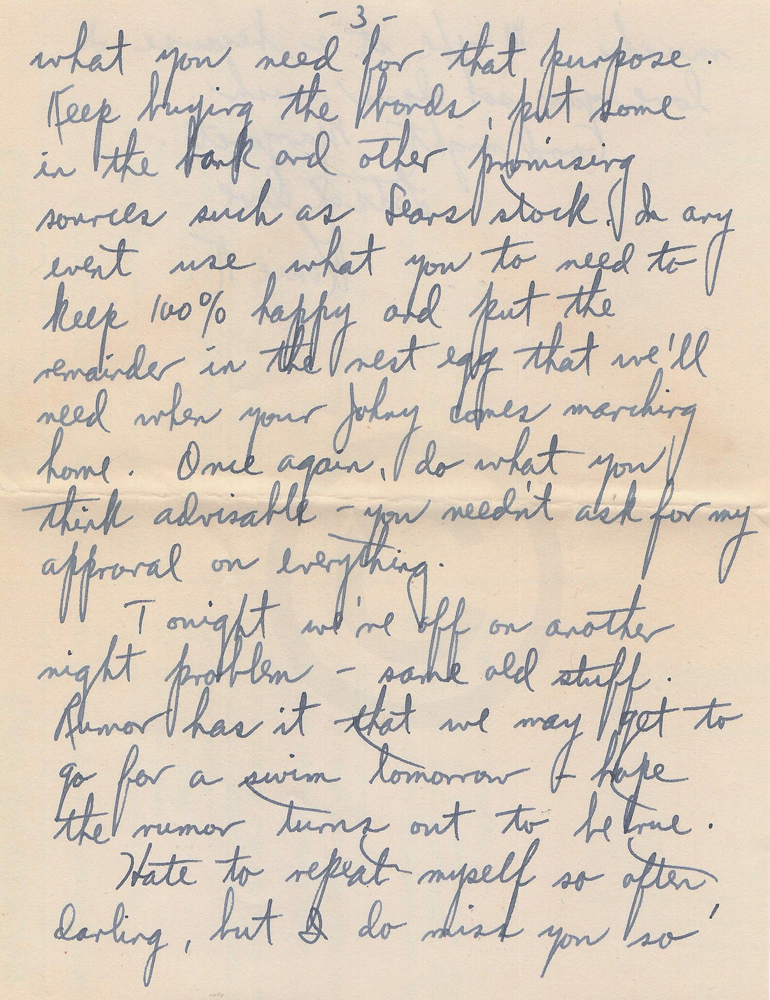 - 3 -
what you need for that purpose.
Keep buying the bonds, put some
in the bank and other promising
sources such as Sears stock. In any
event use what you to need to
keep 100% happy and put the
remainder in the nest egg that we'll
need when your Johny comes marching
home. Once again, do what you
think advisable - you needn't ask for my
approval on everything.
Tonight we're off on another
night problem - same old stuff.
Rumor has it that we may get to
go for a swim tomorrow - hope
the rumor turns out to be true.
Hate to repeat myself so often
darling, but I do miss you so